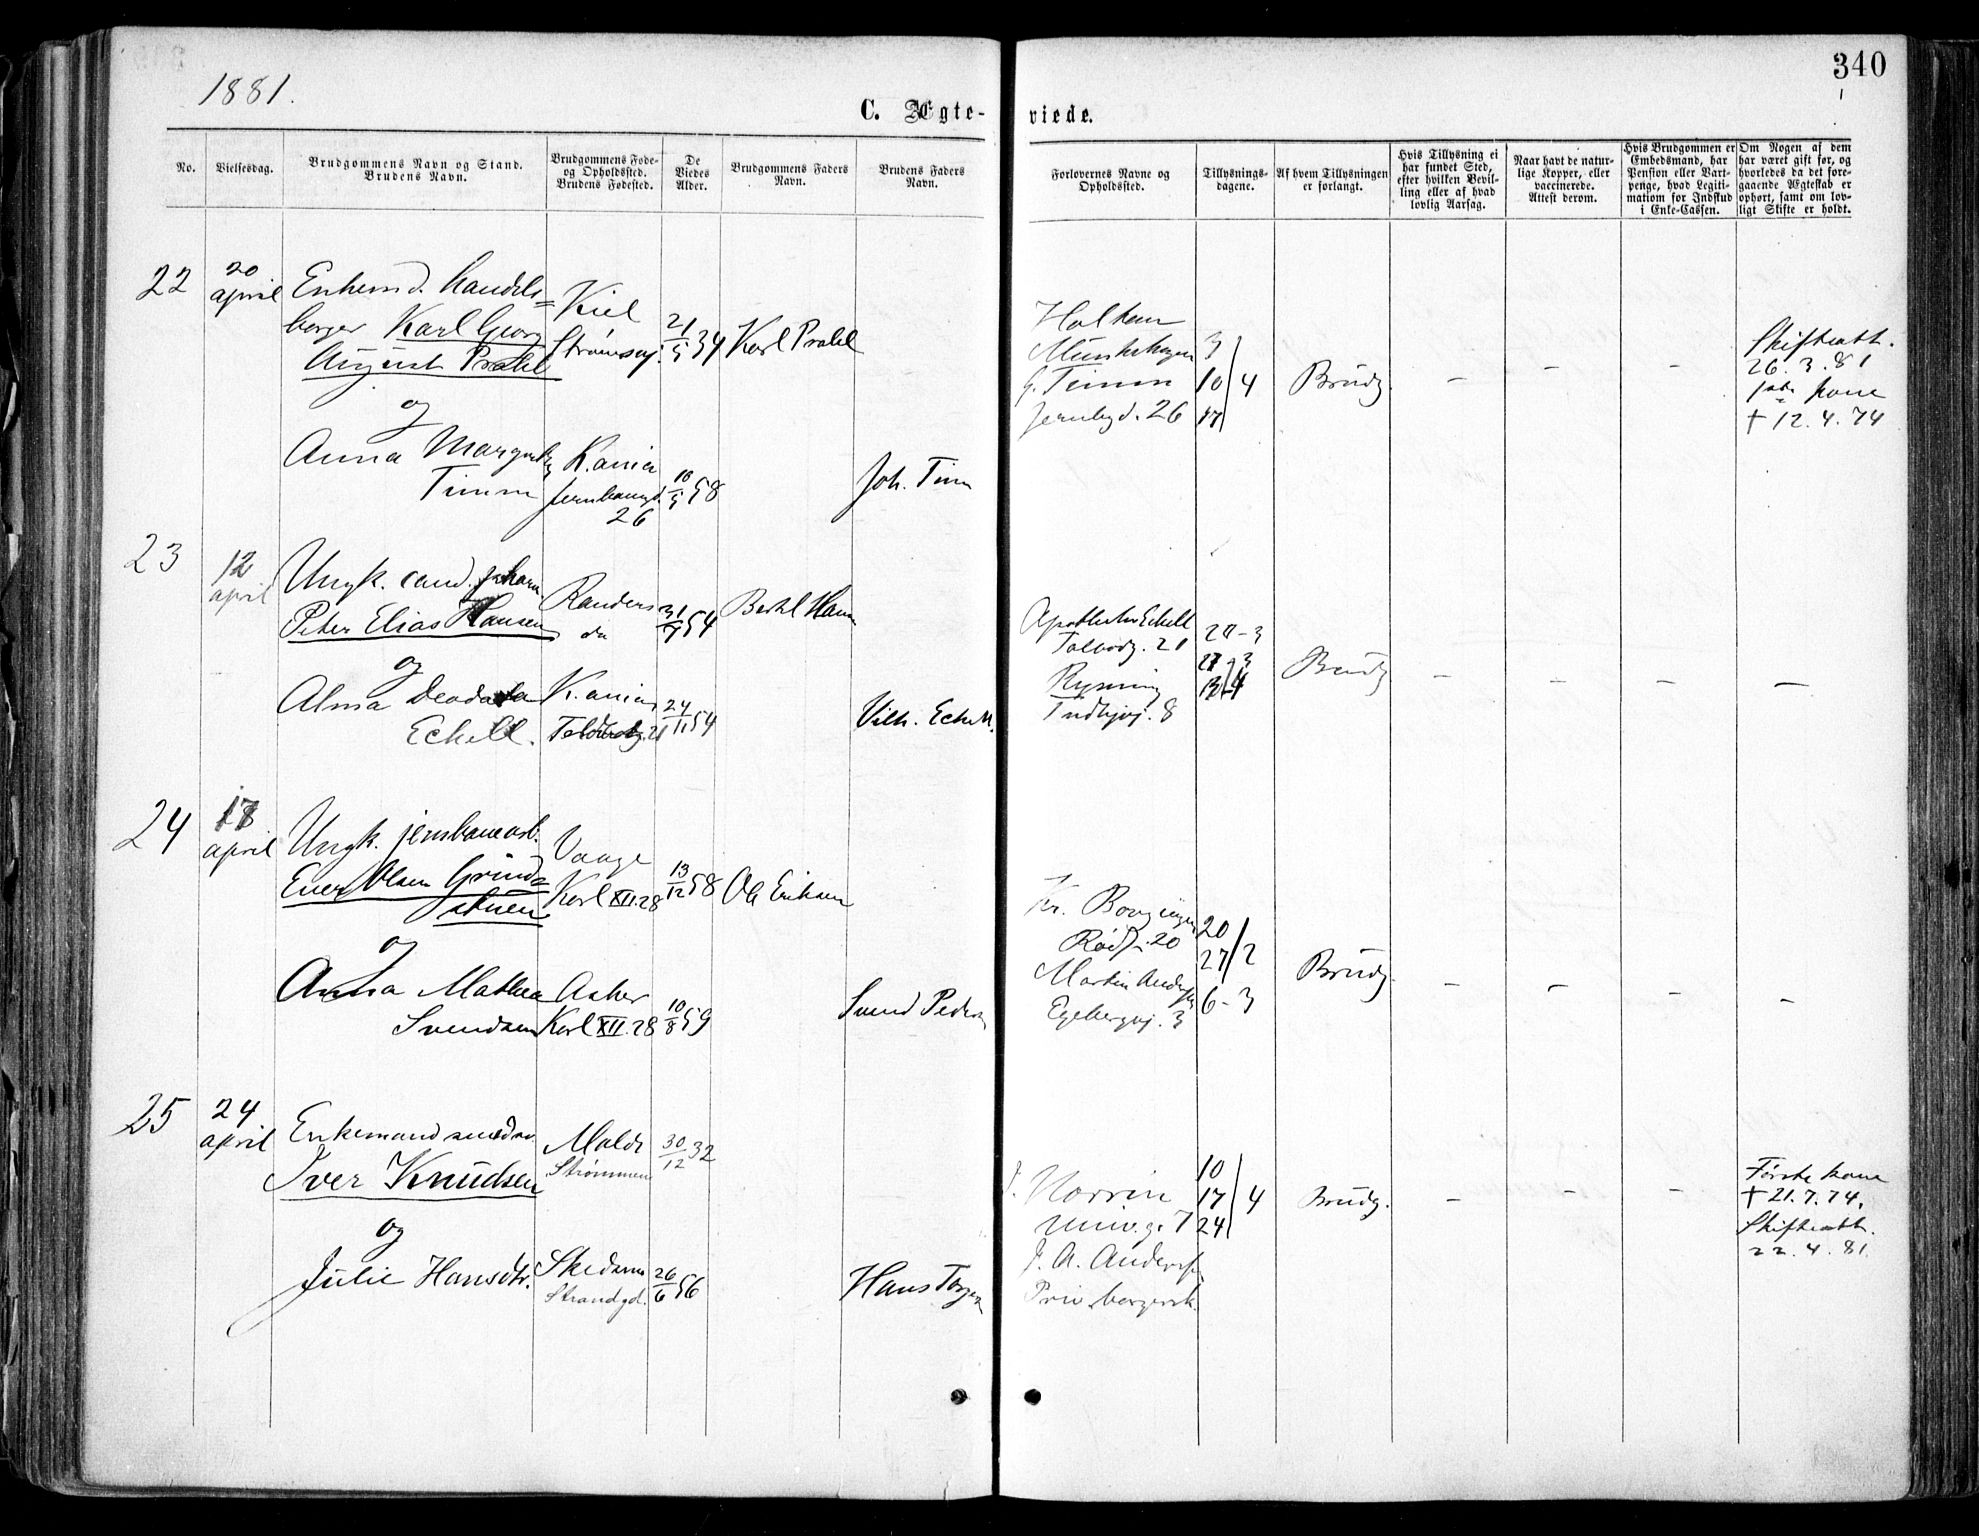 1881.
340
C. Ægte-
viede.
No.
Vielsesdag.
Brudgommens Navn og Stand.
Brudens Navn.
Brudgommens Føde-
og Opholdssted.
Brudens Fødested.
De
Viedes
Alder.
Brudgommens Faders
Navn.
Brudens Faders
Navn.
Forlovernes Navne og
Opholdssted.
Tillysnings-
dagene.
Af hvem Tillysningen
er forlangt.
Hvis Tillysning ei
har fundet Sted,
efter hvilken Bevil-
ling eller af hvad
lovlig Aarsag.
Naar havt de natur-
lige Kopper, eller
vaccinerede.
Attest derom.
Hvis Brudgommen er
Embedsmand, har
Pension eller Vart-
penge, hvad Legiti-
mation for Indskud
i Enke-Cassen.
Om Nogen af dem
har været gift før, og
hvorledes da det fore-
gaaende Ægteskab er
ophørt, samt om lov-
ligt Skifte er holdt.
22
20
april
Enkemd. handels-
borger Karl Georg
August Prahl
og
Anna
Timm
Kiel
K.ania
26
21/5 34
10/5 58
Karl Prahl
Joh. Timm
G. Timm
Jernbgd. 26
3
10/4
17
Brudg.
-
-
-
Skifteatt.
26.3.81
1ste kone
† 12.4.74
23
12
april
Ungk. cand.
Peter Elias Hansen
og
Alma Deodata
Eckell.
Randers
do
K.ania
54
24/11 54
Bertel Hansen
Vilh. Eckell.
Apotheker Eckell
Toldbodg. 21
Ryning
8
20-3
27-3
Brudg.
-
-
-
-
24
april
Ungk. jernbanearb.
Ener Olsen Grinds-
stuen
og
Anna Mathea
Svendsen
Vaage
Karl XII. 28
Asker
Karl XII. 28
13/12 58
10/8 59
Ole Eriksen
Svend Pedersen
Kr.
20
Martin Andersen
Egebergvj. 3
20
27/2
6-3
Brudg.
-
-
-
-
25
24
april
Enkemand
Iver Knudsen
og
Julie Hansdtr.
Molde
Strømmen
Strandgd.
30/12 32
26/6 56
Hans
J. Norrin
Univ.g. 7
J. A. Andersen
10
17/4
24
Brudg.
-
-
-
Første kone
† 21.7.74.
Skifteatt.
22.4.81.